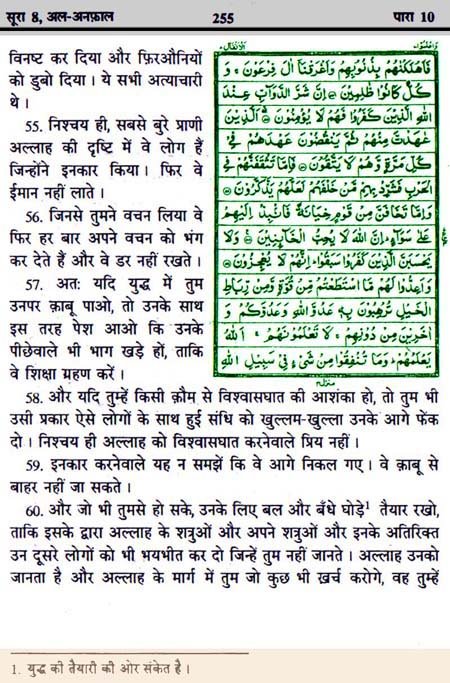 सूरा 8, अल-अनफ़ाल 255 पारा 10
विनष्ट कर दिया और फ़िरऔनियों
को डुबो दिया। ये सभी अत्याचारी
थे।
55. निश्चय ही, सबसे बुरे प्राणी
अल्लाह की दृष्टि में वे लोग हैं
जिन्होंने इनकार किया। फिर वे
ईमान नहीं लाते।
56. जिनसे तुमने वचन लिया वे
फिर हर बार अपने वचन को भंग
कर देते हैं और वे डर नहीं रखते।
57. अतः यदि युद्ध में तुम
उनपर क़ाबू पाओ, तो उनके साथ
इस तरह पेश आओ कि उनके
पीछेवाले भी भाग खड़े हों, ताकि
वे शिक्षा ग्रहण करें।
فَأَهْلَكْنَٰهُمْ بِذُنُوبِهِمْ وَأَغْرَقْنَا آلَ فِرْعَوْنَ ۚ وَ
كُلٌّ كَانُوا ظٰلِمِينَ ۝ إِنَّ شَرَّ الدَّوَآبِّ عِنْدَ
اللهِ الَّذِينَ كَفَرُوا فَهُمْ لَا يُؤْمِنُونَ ۝ الَّذِينَ
عٰهَدْتَّ مِنْهُمْ ثُمَّ يَنْقُضُونَ عَهْدَهُمْ فِي
كُلِّ مَرَّةٍ وَّهُمْ لَا يَتَّقُونَ ۝ فَإِمَّا تَثْقَفَنَّهُمْ فِي
الْحَرْبِ فَشَرِّدْ بِهِمْ مَّنْ خَلْفَهُمْ لَعَلَّهُمْ يَذَّكَّرُونَ ۝
وَإِمَّا تَخَافَنَّ مِنْ قَوْمٍ خِيَانَةً فَانْۢبِذْ إِلَيْهِمْ
عَلَىٰ سَوَآءٍ ۚ إِنَّ اللهَ لَا يُحِبُّ الْخَآئِنِينَ ۝ وَلَا
يَحْسَبَنَّ الَّذِينَ كَفَرُوا سَبَقُوا ۚ إِنَّهُمْ لَا يُعْجِزُونَ ۝
وَأَعِدُّوا لَهُمْ مَّا اسْتَطَعْتُمْ مِّنْ قُوَّةٍ وَّمِنْ رِّبَاطِ
الْخَيْلِ تُرْهِبُونَ بِهِ عَدُوَّ اللهِ وَعَدُوَّكُمْ وَ
آخَرِينَ مِنْ دُونِهِمْ ۚ لَا تَعْلَمُونَهُمْ ۚ اللهُ
يَعْلَمُهُمْ ۚ وَمَا تُنْفِقُوا مِنْ شَيْءٍ فِي سَبِيلِ اللهِ
58. और यदि तुम्हें किसी क़ौम से विश्वासघात की आशंका हो, तो तुम भी
उसी प्रकार ऐसे लोगों के साथ हुई संधि को खुल्लम-खुल्ला उनके आगे फेंक
दो। निश्चय ही अल्लाह को विश्वासघात करनेवाले प्रिय नहीं।
59. इनकार करनेवाले यह न समझें कि वे आगे निकल गए। वे क़ाबू से
बाहर नहीं जा सकते।
60. और जो भी तुमसे हो सके, उनके लिए बल और बँधे घोड़े¹ तैयार रखो,
ताकि इसके द्वारा अल्लाह के शत्रुओं और अपने शत्रुओं और इनके अतिरिक्त
उन दूसरे लोगों को भी भयभीत कर दो जिन्हें तुम नहीं जानते। अल्लाह उनको
जानता है और अल्लाह के मार्ग में तुम जो कुछ भी ख़र्च करोगे, वह तुम्हें
1. युद्ध की तैयारी की ओर संकेत है।